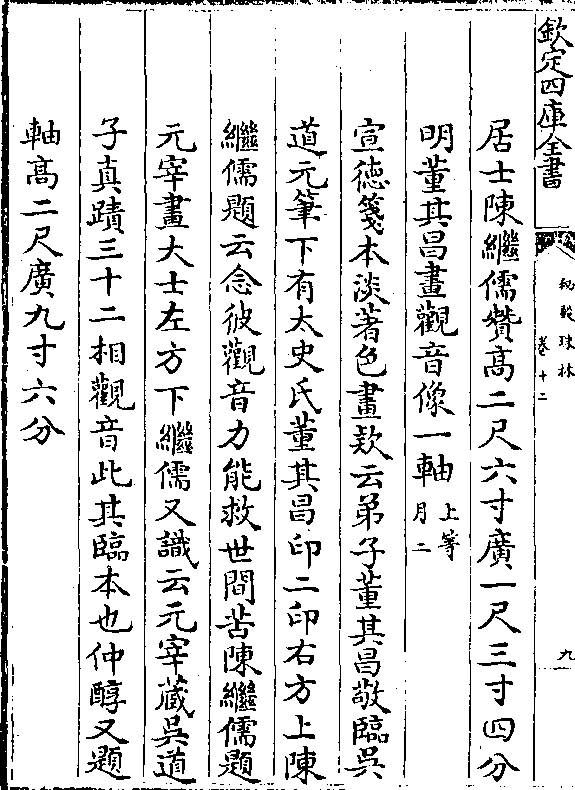 欽定四庫全書
秘殿珠林
卷十二
九
居士陳繼儒贊高二尺六寸廣一尺三寸四分
明董其昌畫觀音像一軸上等月二
宣徳箋本淡著色畫欵云弟子董其昌敬臨吳
道元筆下有太史氏董其昌印二印右方上陳
繼儒題云念彼觀音力能救世間苦陳繼儒題
元宰畫大士左方下繼儒又識云元宰藏吳道
子真蹟三十二相觀音此其臨本也仲醇又題
軸髙二尺廣九寸六分